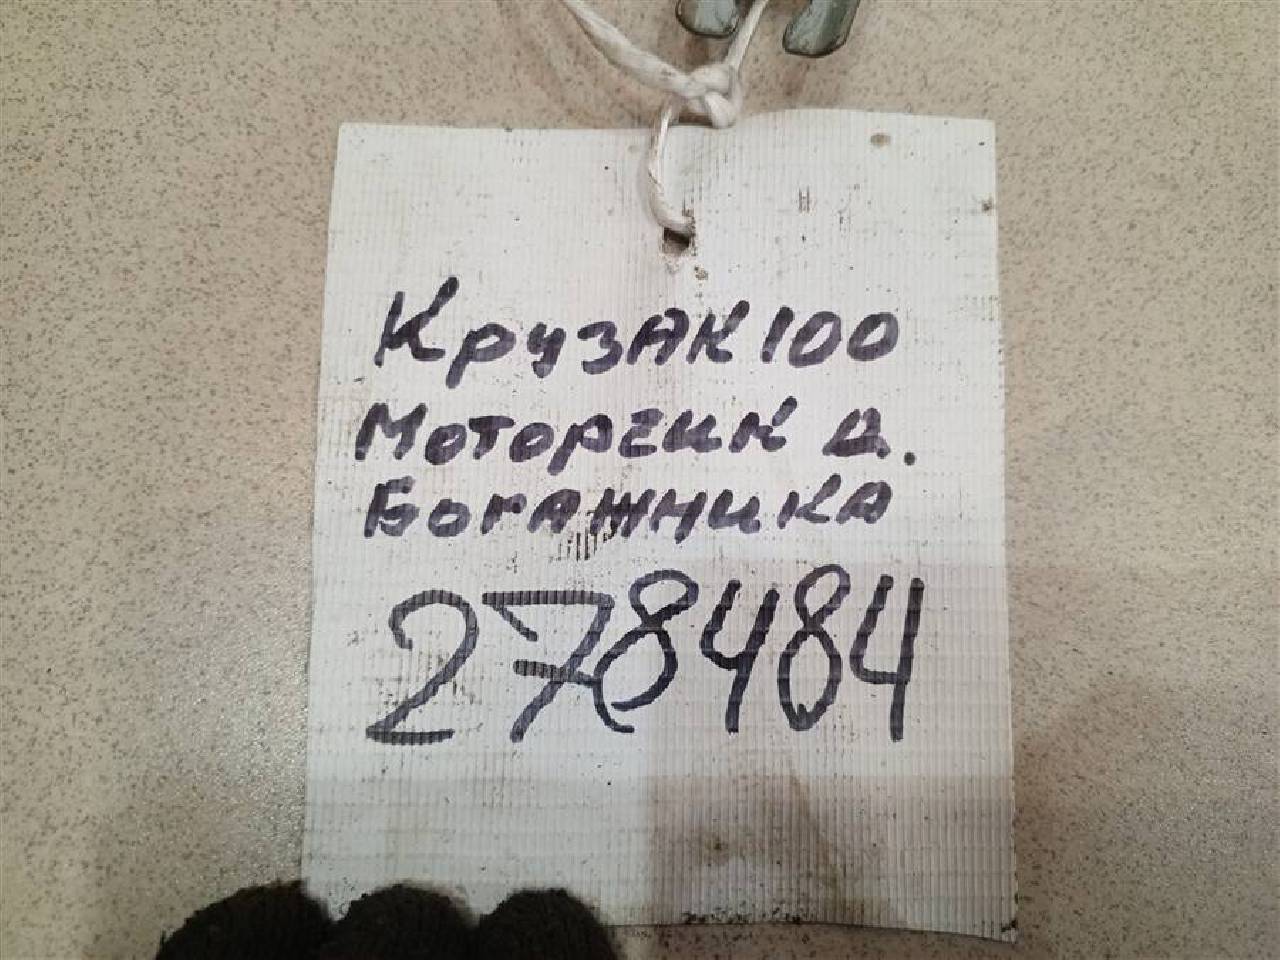 Крузак 100
Моторчик д.
Багажника
278484